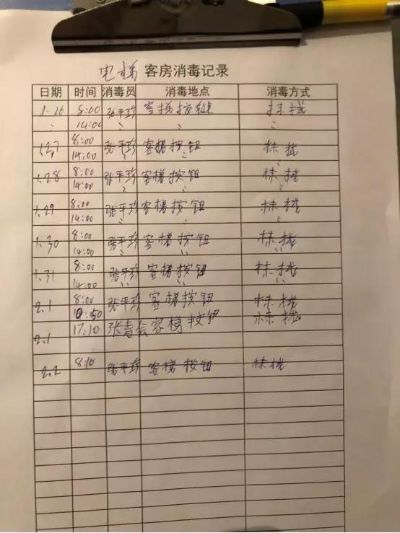 电梯 客房消毒记录
日期 时间 消毒员 消毒地点 消毒方式
8:00 张平珍 客梯按钮
14:00
1.27 8:00 张平珍 客梯按钮 抹拢
14:00
1.28 8:00 张平珍 客梯按钮 抹拢
14:00
1.29 8:00 张平珍 客梯按钮 抹拢
14:00
1.30 8:00 张平珍 客梯按钮 抹拢
14:00
1.31 8:00 张平珍 客梯按钮 抹拢
14:00
2.1 8:00 张平珍 客梯按钮 抹拢
抹拢
2.1 17:10 客梯按钮
2.2 8:10 张平珍 客梯按钮 抹拢